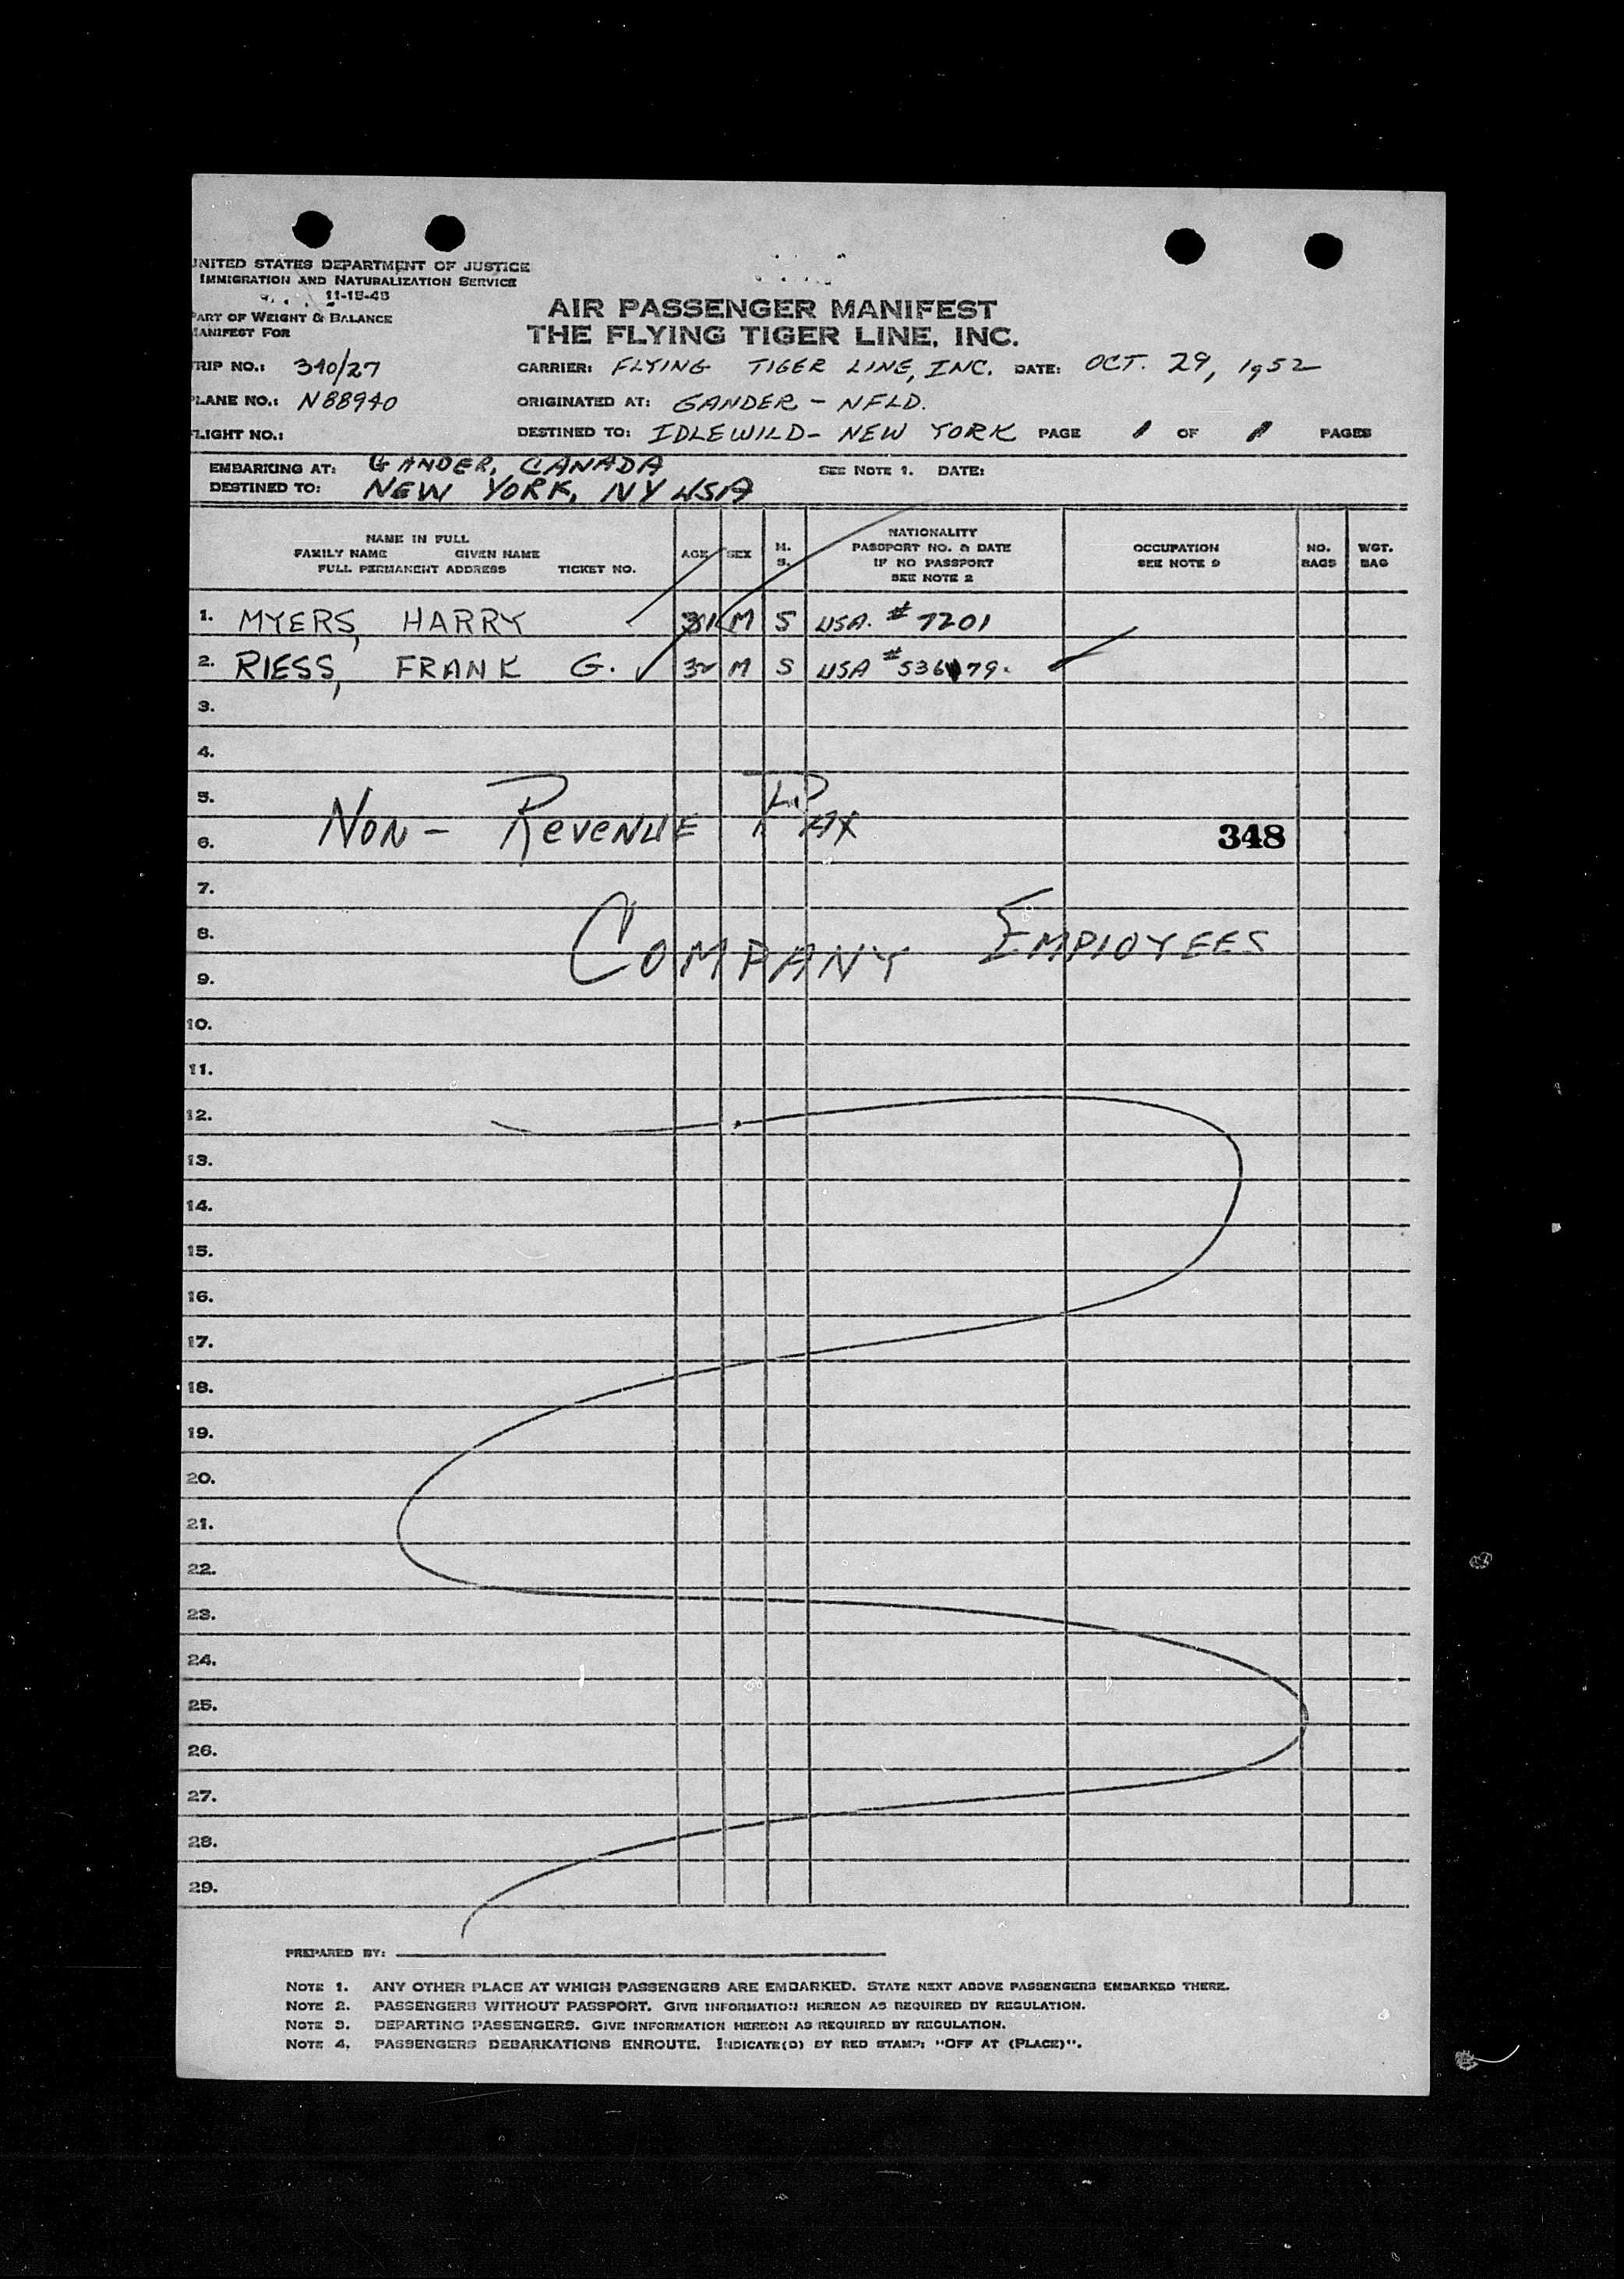 UNITED STATES DEPARTMENT OF JUSTICE
IMMIGRATION AND NATURALIZATION SERVICE
11-15-48
PART OF WEIGHT & BALANCE
MANIFEST FOR
AIR PASSENGER MANIFEST
THE FLYING TIGER LINE, INC.
TRIP NO.: 340/27 CARRIER: FLYING TIGER LINE, INC. DATE: OCT. 29, 1952
PLANE NO.: N88940 ORIGINATED AT: GANDER - NFLD.
FLIGHT NO.: DESTINED TO: IDLEWILD - NEW YORK PAGE 1 OF 1 PAGES
EMBARKING AT: GANDER, CANADA SEE NOTE 1. DATE:
DESTINED TO: NEW YORK, NY USA
NAME IN FULL
FAMILY NAME GIVEN NAME
FULL PERMANENT ADDRESS TICKET NO.
AGE
SEX
M.
S.
NATIONALITY
PASSPORT NO. & DATE
IF NO PASSPORT
SEE NOTE 2
OCCUPATION
SEE NOTE 3
NO.
BAGS
WGT.
BAG
1. MYERS, HARRY 31 M S USA. # 7201
2. RIESS, FRANK G. 32 M S USA #
3.
4.
5.
NON- REVENUE PAX
6. 348
7.
8. COMPANY EMPLOYEES
9.
10.
11.
12.
13.
14.
15.
16.
17.
18.
19.
20.
21.
22.
23.
24.
25.
26.
27.
28.
29.
PREPARED BY:
NOTE 1. ANY OTHER PLACE AT WHICH PASSENGERS ARE EMBARKED. STATE NEXT ABOVE PASSENGERS EMBARKED THERE.
NOTE 2. PASSENGERS WITHOUT PASSPORT. GIVE INFORMATION HEREON AS REQUIRED BY REGULATION.
NOTE 3. DEPARTING PASSENGERS. GIVE INFORMATION HEREON AS REQUIRED BY REGULATION.
NOTE 4. PASSENGERS DEBARKATIONS ENROUTE. INDICATE(D) BY RED STAMP: "OFF AT (PLACE)".